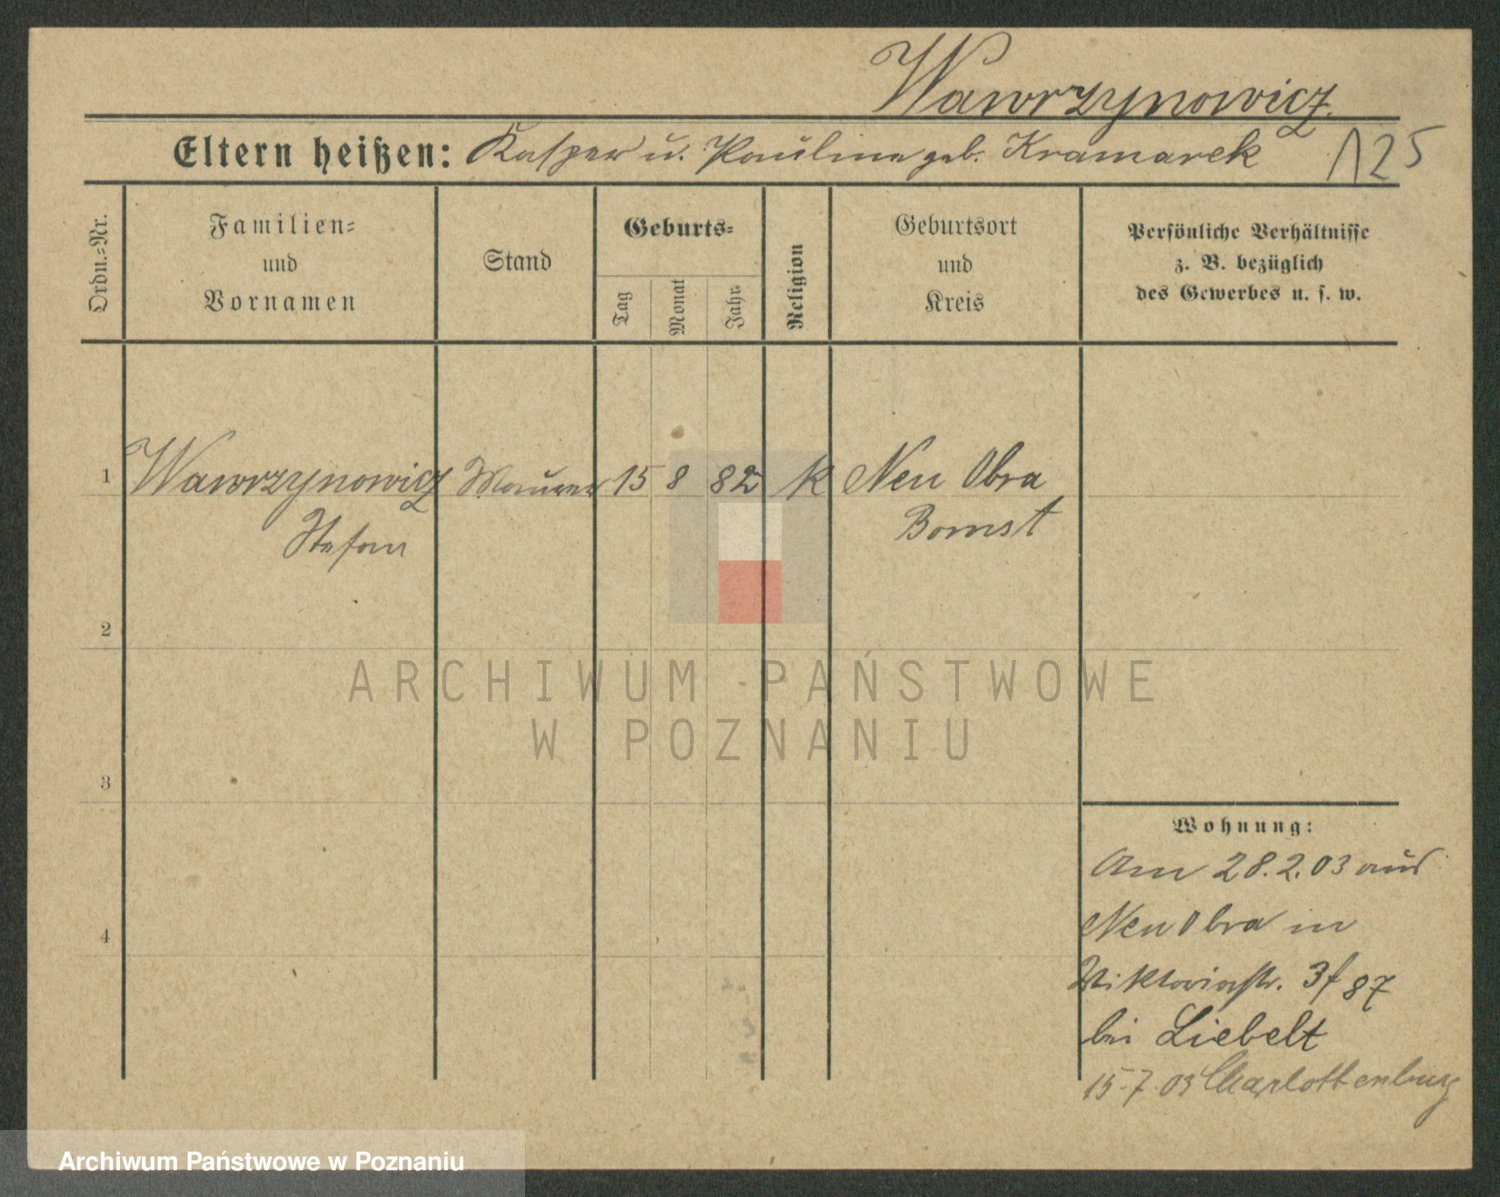 Wawrzynowicz.
Eltern heißen: Kasper u. Pauline geb. Kramarek
125
Ordn.-Nr.
Familien-
und
Vornamen
Stand
Geburts-
Tag
Monat
Jahr
Religion
Geburtsort
und
Kreis
Persönliche Verhältnisse
z. B. bezüglich
des Gewerbes u. s. w.
1 Wawrzynowicz Maurer 15 8 82 K Neu Obra
Stefan Bomst
2
ARCHIWUM PAŃSTWOWE
W POZNANIU
3
Wohnung:
Am 28.2.03 aus
4 Neu Obra in
Viktoriastr. 37
bei Liebelt
15.7.03 Charlottenburg
Archiwum Państwowe w Poznaniu